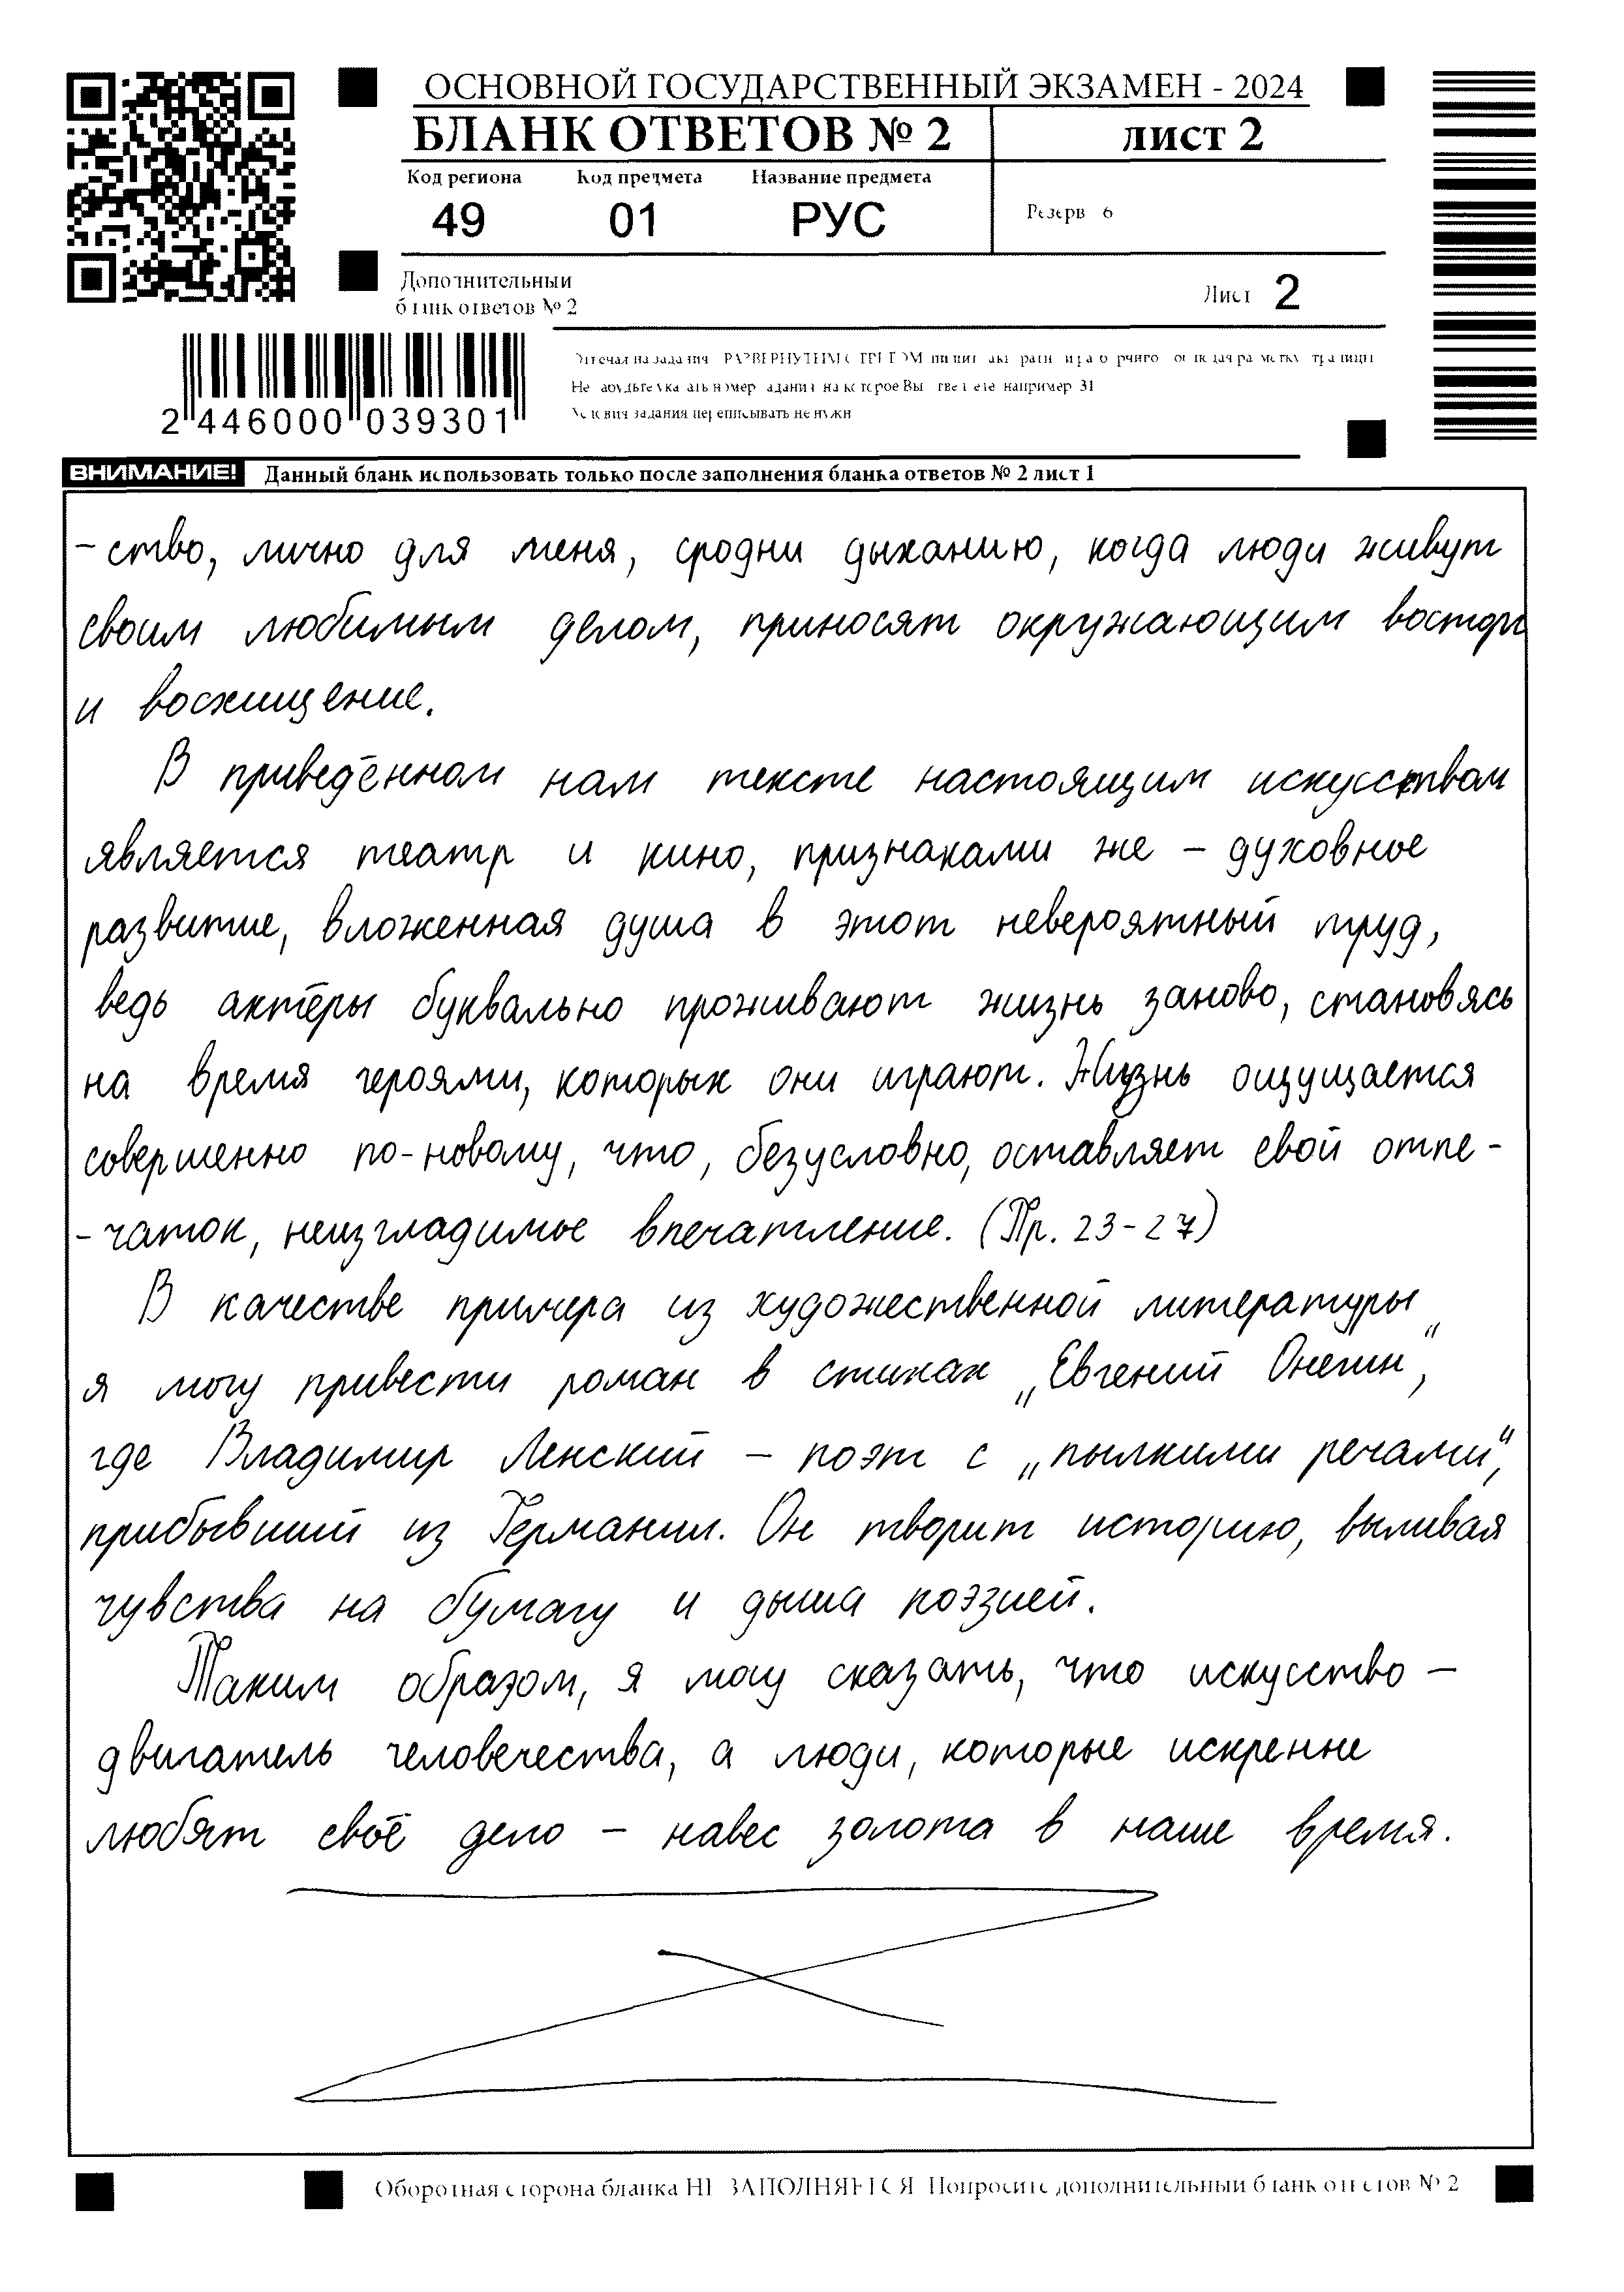 ОСНОВНОЙ ГОСУДАРСТВЕННЫЙ ЭКЗАМЕН - 2024
БЛАНК ОТВЕТОВ № 2 ЛИСТ 2
Код региона Код предмета Название предмета
49 01 РУС Резерв 6
Дополнительный
бланк ответов № 2 Лист 2
2 446000 039301
Условия задания переписывать не нужно
ВНИМАНИЕ! Данный бланк использовать только после заполнения бланка ответов № 2 лист 1
-ство, лично для меня, сродни дыханию, когда люди живут
своим любимым делом, приносят окружающим восторг
и восхищение.
В приведённом нам тексте настоящим искусством
является театр и кино, признаками же – духовное
развитие, вложенная душа в этот невероятный труд,
ведь актёры буквально проживают жизнь заново, становясь
на время героями, которых они играют. Жизнь ощущается
совершенно по-новому, что, безусловно, оставляет свой отпе-
-чаток, неизгладимое впечатление. (Пр. 23-27)
В качестве примера из художественной литературы
я могу привести роман в стихах „Евгений Онегин“,
где Владимир Ленский – поэт с „пылкими речами“,
прибывший из Германии. Он творит историю, выливая
чувства на бумагу и дыша поэзией.
Таким образом, я могу сказать, что искусство –
двигатель человечества, а люди, которые искренне
любят своё дело – навес золота в наше время.
Оборотная сторона бланка НЕ ЗАПОЛНЯЕТСЯ Попросите дополнительный бланк ответов № 2